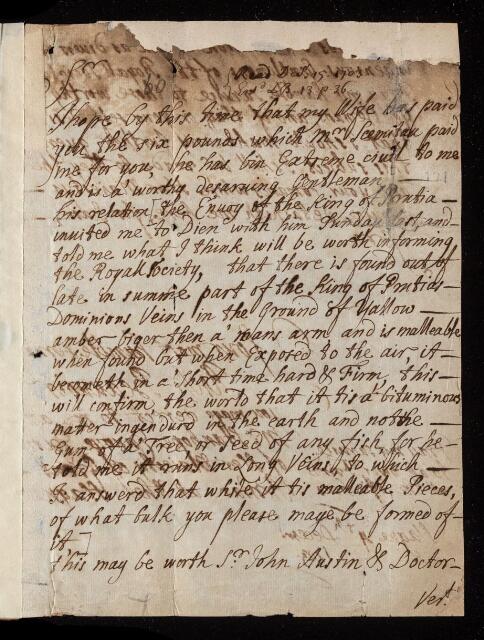 Sr
I hope by this time that my Wife has paid
you the six pounds which mr Scemitau paid
me for you, he has bin Extreme civil to me
and is a worthy desarving Gentleman —
his relation [the Envoy of the King of Prutia —
invited me to Dien with him Sunday last, and —
told me what I think will be worth informing
the Royal Society, that there is found out of
late in summe part of the King of Prutias —
Dominions Veins in the Ground of Yallow —
amber biger then a mans arm and is malleable
when found but when Exposed to the air, it —
becometh in a Short time hard & Firm, this —
will confirm the world that it tis a bituminous
matter ingendurd in the earth and not the —
Gum of a Tree or Seed of any fish for he —
told me it runs in Long Veins, to which —
I answerd that while it tis malleable Pieces,
of what bulk you please maye be formed of —
it,]
this may be worth Sr John Austin & Doctor —